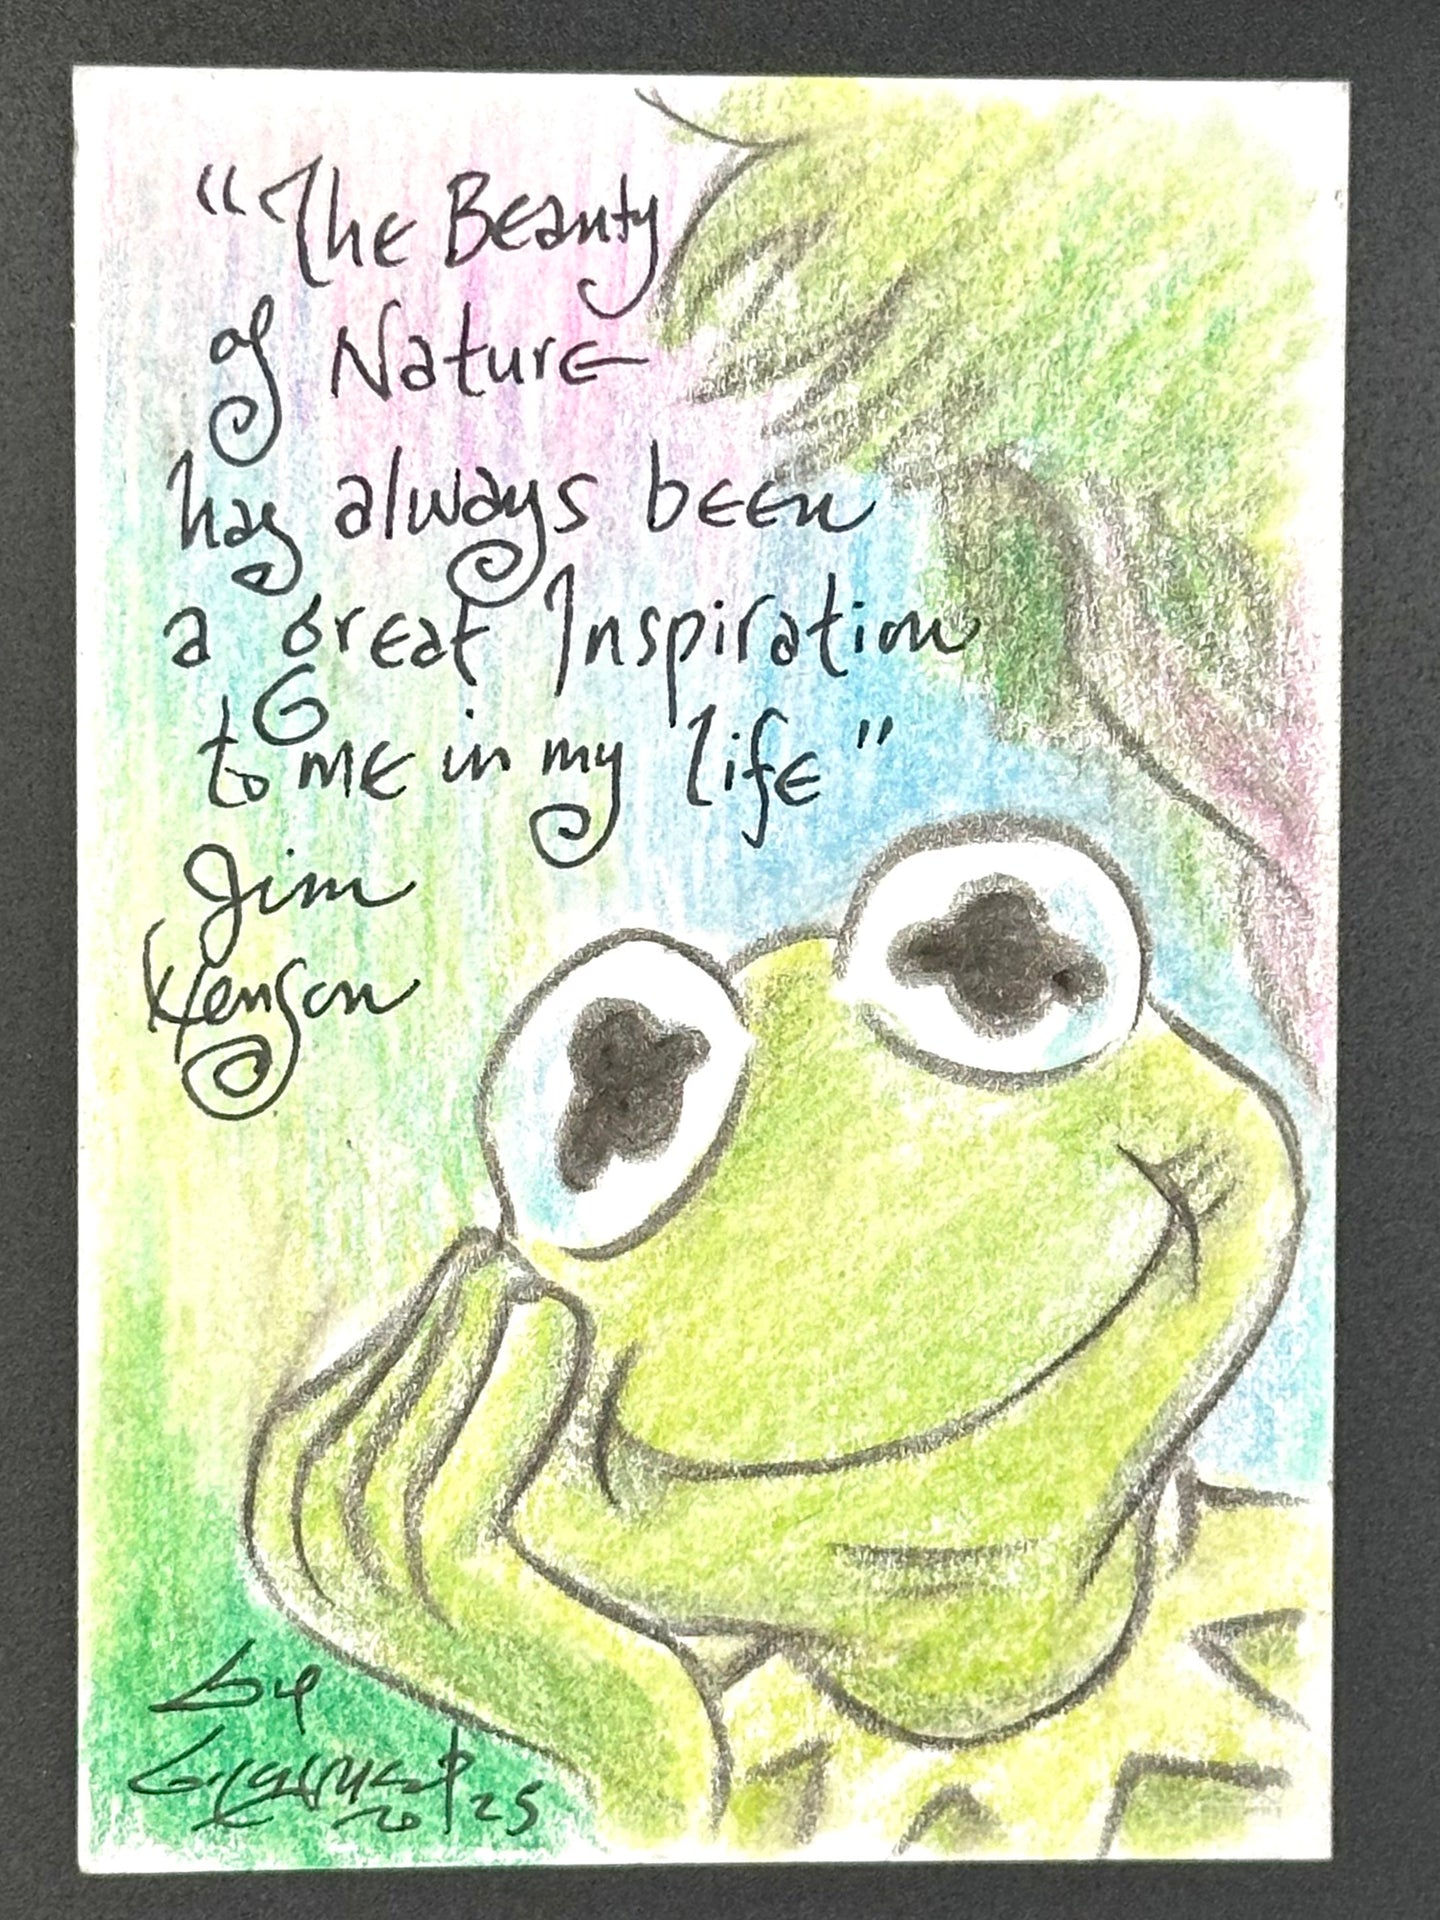 "The Beauty
of Nature
has always been
a great Inspiration
to me in my life"
Jim
Henson
by
2025